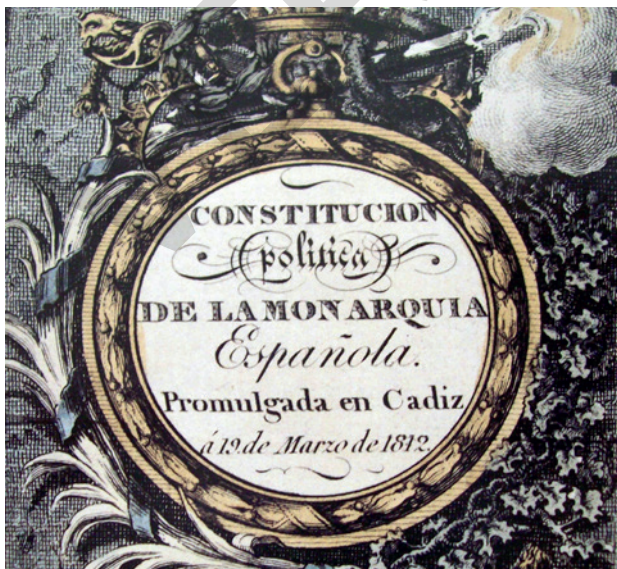 CONSTITUCION
politica
DE LA MONARQUIA
Española.
Promulgada en Cadiz
á 19. de Marzo de 1812.